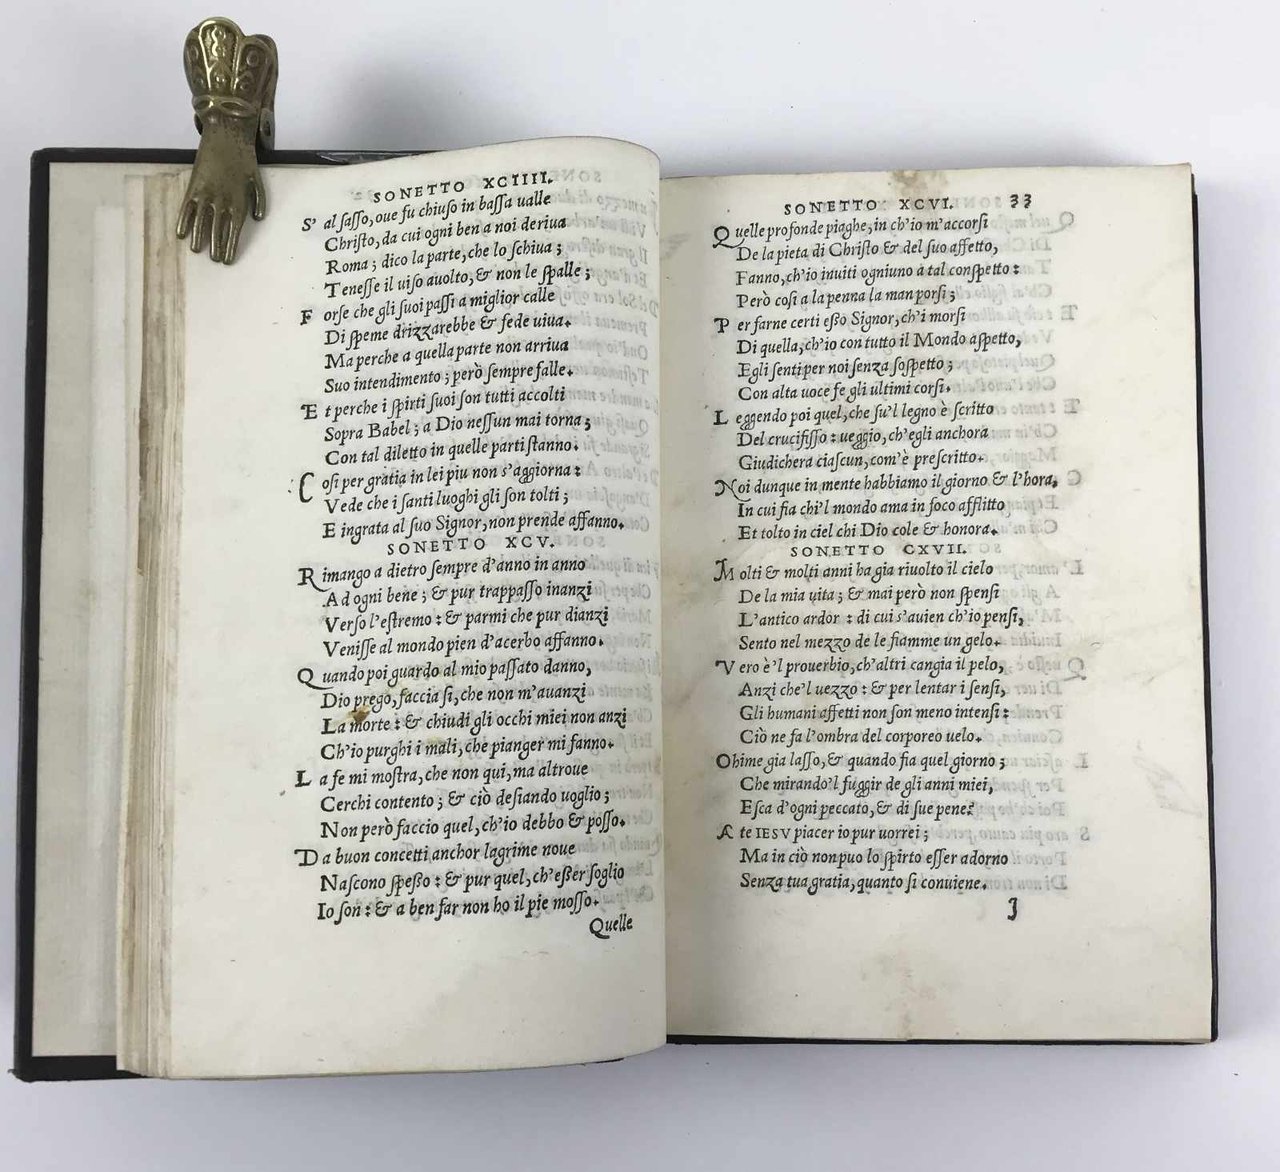 SONETTO XCIIII.
S' al ſaſſo, oue fu chiuſo in baſſa ualle
Chriſto, da cui ogni ben a noi deriua
Roma; dico la parte, che lo ſchiua;
Teneſſe il uiſo auolto, & non le ſpalle;
F orſe che gli ſuoi paſſi a miglior calle
Di ſpeme drizzarebbe & fede uiua.
Ma perche a quella parte non arriua
Suo intendimento; però ſempre falle.
E t perche i ſpirti ſuoi ſon tutti accolti
Sopra Babel; a Dio neſſun mai torna;
Con tal diletto in quelle parti ſtanno.
C oſi per gratia in lei piu non s'aggiorna:
Vede che i ſanti luoghi gli ſon tolti;
E ingrata al ſuo Signor, non prende affanno.
SONETTO XCV.
R imango a dietro ſempre d'anno in anno
Ad ogni bene; & pur trappaſſo inanzi
Verſo l'eſtremo: & parmi che pur dianzi
Veniſſe al mondo pien d'acerbo affanno.
Q uando poi guardo al mio paſſato danno,
Dio prego, faccia ſi, che non m'auanzi
La morte: & chiudi gli occhi miei non anzi
Ch'io purghi i mali, che pianger mi fanno.
L a fe mi moſtra, che non qui, ma altroue
Cerchi contento; & ciò deſiando uoglio;
Non però faccio quel, ch'io debbo & poſſo.
D a buon concetti anchor lagrime noue
Naſcono ſpeßo: & pur quel, ch'eßer ſoglio
Io ſon: & a ben far non ho il pie moſſo.
Quelle
SONETTO XCVI. 33
Q uelle profonde piaghe, in ch'io m'accorſi
De la pieta di Chriſto & del ſuo affetto,
Fanno, ch'io inuiti ogniuno à tal conſpetto:
Però coſi a la penna la man porſi;
P er farne certi eßo Signor, ch'i morſi
Di quella, ch'io con tutto il Mondo aſpetto,
Egli ſenti per noi ſenza ſoſpetto;
Con alta uoce fe gli ultimi corſi.
L eggendo poi quel, che ſu'l legno è ſcritto
Del crucifiſſo: ueggio, ch'egli anchora
Giudichera ciaſcun, com'è preſcritto.
N oi dunque in mente habbiamo il giorno & l'hora,
In cui fia chi'l mondo ama in foco afflitto
Et tolto in ciel chi Dio cole & honora.
SONETTO CXVII.
M olti & molti anni ha gia riuolto il cielo
De la mia uita; & mai però non ſpenſi
L'antico ardor: di cui s'auien ch'io penſi,
Sento nel mezzo de le fiamme un gelo.
V ero è'l prouerbio, ch'altri cangia il pelo,
Anzi che'l uezzo: & per lentar i ſenſi,
Gli humani affetti non ſon meno intenſi:
Ciò ne fa l'ombra del corporeo uelo.
O hime gia laſſo, & quando fia quel giorno;
Che mirando'l fuggir de gli anni miei,
Eſca d'ogni peccato, & di ſue pene?
A te IESV piacer io pur uorrei;
Ma in ciò non puo lo ſpirto eſſer adorno
Senza tua gratia, quanto ſi conuiene.
J